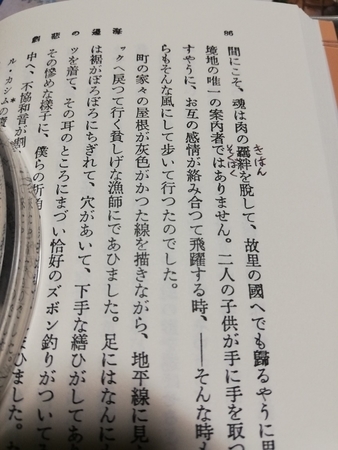 86
海邊の悲劇
間にこそ、魂は肉の羈絆を脱して、故里の國へでも歸るやうに思
きはん
そくばく
境地の唯一の案内者ではありません。二人の子供が手に手を取つ
すやうに、お互の感情が絡み合つて飛躍する時、――そんな時も
らもそんな風にして歩いて行つたのでした。
町の家々の屋根が灰色がかつた線を描きながら、地平線に見
ックへ戻つて行く貧しげな漁師にであひました。足にはなんに
は裾がぼろぼろにちぎれて、穴があいて、下手な繕ひがしてあ
ツを着て、その耳のところにまづい恰好のズボン釣りがついて
その慘めな樣子に、僕らの折角
中へ、不協和音が割
ひました。